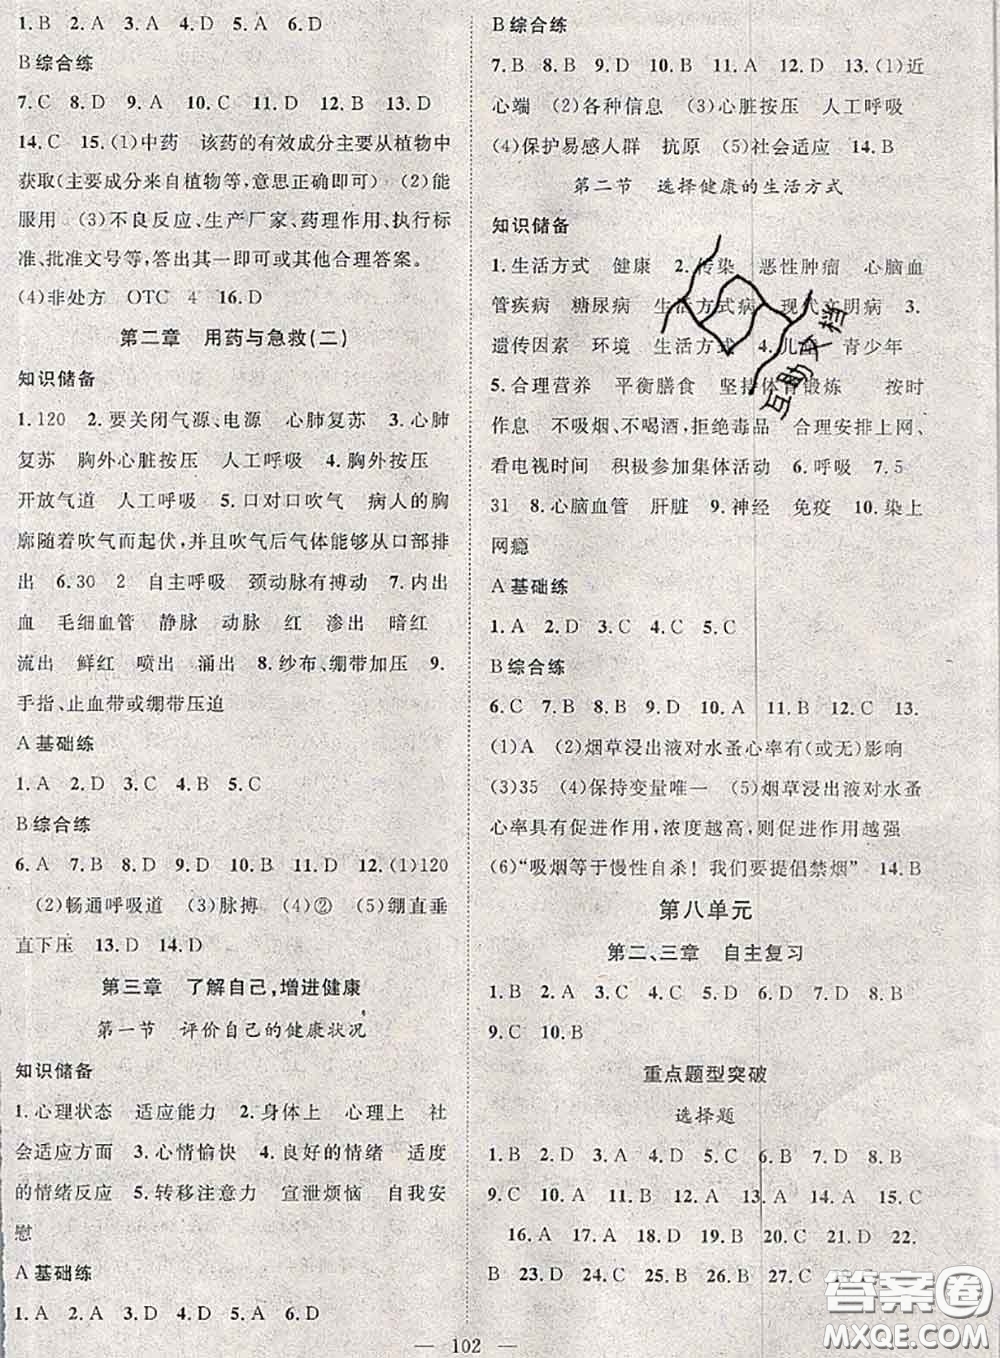 1.B 2.A 3.D 4.D 5.A 6.D
B综合练
7.C 8.D 9.A 10.C 11.D 12.B 13.D
14.C 15.(1)中药 该药的有效成分主要从植物中
获取(主要成分来自植物等,意思正确即可) (2)能
服用 (3)不良反应、生产厂家、药理作用、执行标
准、批准文号等,答出其一即可或其他合理答案。
(4)非处方 OTC 4 16.D
第二章 用药与急救(二)
知识储备
1.120 2.要关闭气源、电源 心肺复苏 4.心肺
复苏 胸外心脏按压 人工呼吸 4.胸外按压
开放气道 人工呼吸 5.口对口吹气 病人的胸
廓随着吹气而起伏,并且吹气后气体能够从口部排
出 6.30 2 自主呼吸 颈动脉有搏动 7.内出
血 毛细血管 静脉 动脉 红 渗出 暗红
流出 鲜红 喷出 涌出 8.纱布、绷带加压 9.
手指、止血带或绷带压迫
A基础练
1.A 2.D 3.C 4.B 5.C
B综合练
6.A 7.B 8.D 9.D 10.B 11.D 12.(1)120
(2)畅通呼吸道 (3)脉搏 (4)② (5)绷直垂
直下压 13.D 14.D
第三章 了解自己,增进健康
第一节 评价自己的健康状况
知识储备
1.心理状态 适应能力 2.身体上 心理上 社
会适应方面 3.心情愉快 4.良好的情绪 适度
的情绪反应 5.转移注意力 宣泄烦恼 自我安
慰
A基础练
1.A 2.A 3.D 4.B 5.D 6.D
B综合练
7.B 8.B 9.D 10.B 11.A 12.D 13.(1)近
心端 (2)各种信息 (3)心脏按压 人工呼吸
(4)保护易感人群 抗原 (5)社会适应 14.B
第二节 选择健康的生活方式
知识储备
1.生活方式 健康 2.传染 恶性肿瘤 心脑血
管疾病 糖尿病 生活方式病 现代文明病 3.
遗传因素 环境 生活方式 4.儿童 青少年
5.合理营养 平衡膳食 坚持体育锻炼 按时
作息 不吸烟、不喝酒,拒绝毒品 合理安排上网、
看电视时间 积极参加集体活动 6.呼吸 7.5
31 8.心脑血管 肝脏 9.神经 免疫 10.染上
网瘾
A基础练
1.A 2.D 3.C 4.C 5.C
B综合练
6.C 7.B 8.B 9.D 10.B 11.B 12.C 13.
(1)A (2)烟草浸出液对水蚤心率有(或无)影响
(3)35 (4)保持变量唯一 (5)烟草浸出液对水蚤
心率具有促进作用,浓度越高,则促进作用越强
(6)“吸烟等于慢性自杀!我们要提倡禁烟” 14.B
第八单元
第二、三章 自主复习
1.B 2.A 3.D 4.D 5.B 6.D 7.B 8.D
9.C 10.B
重点题型突破
选择题
1.B 2.B 3.D 4.C 5.B 6.D 7.D 8.B
9.C 10.C 11.D 12.A 13.D 14.A 15.C
16.A 17.A 18.D 19.B 20.C 21.C 22.D
B 23.D 24.C 25.C 26.B 27.B 28.C
102
互助文档
答案圈
MXQE.COM